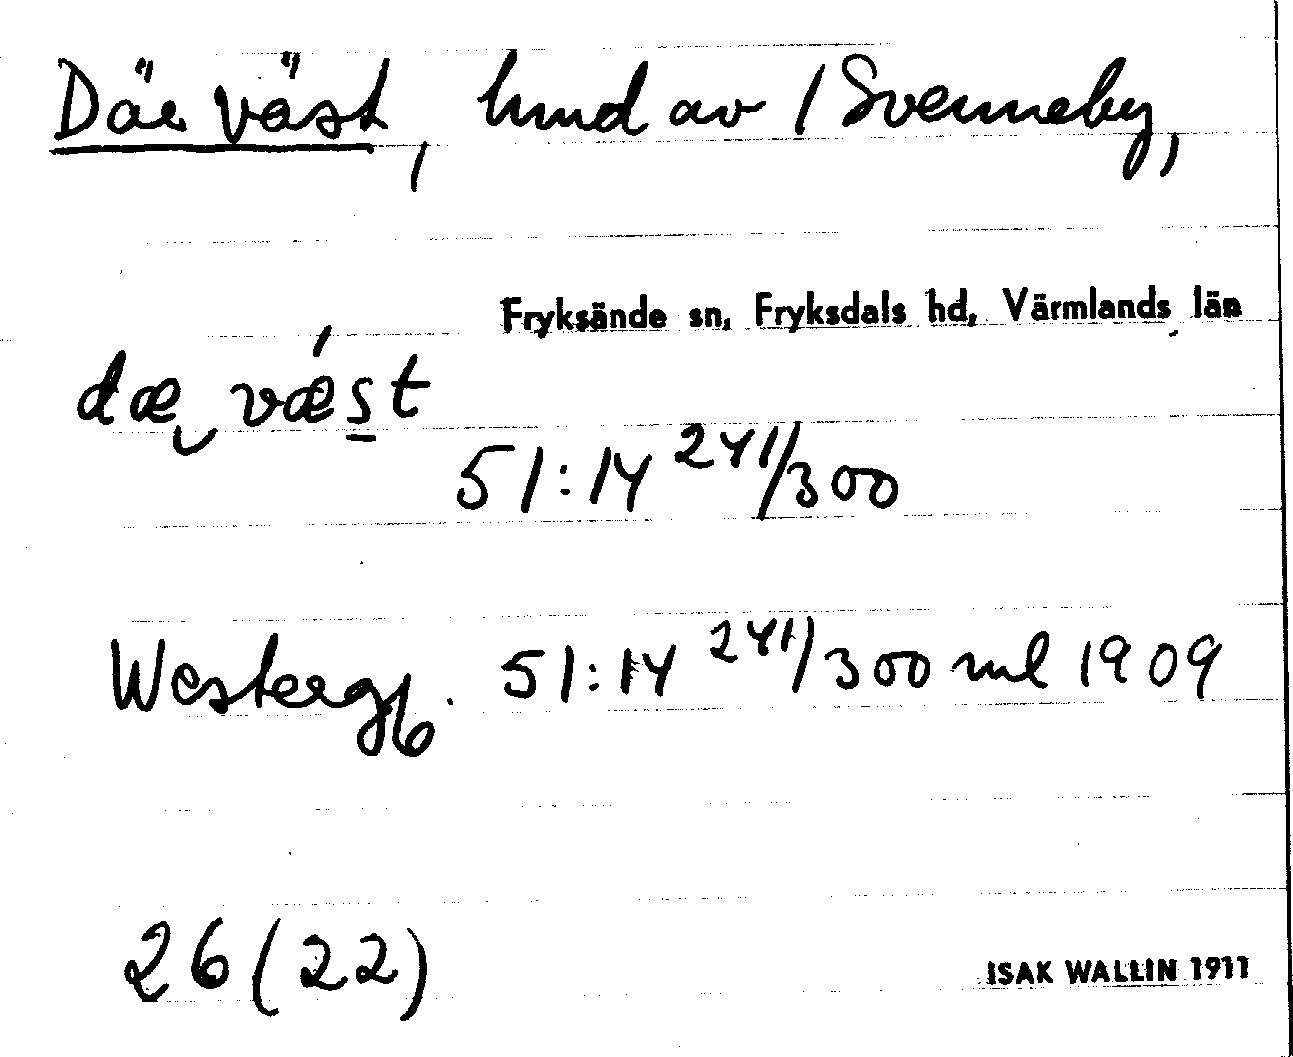 Där väst, hmd av 1 Svenneby,
Fryksände sn, Fryksdals hd, Värmlands län
dæ vǽst
51:14 241/300
51:14 241/300 ml 1909
26 (22)
ISAK WALLIN 1911